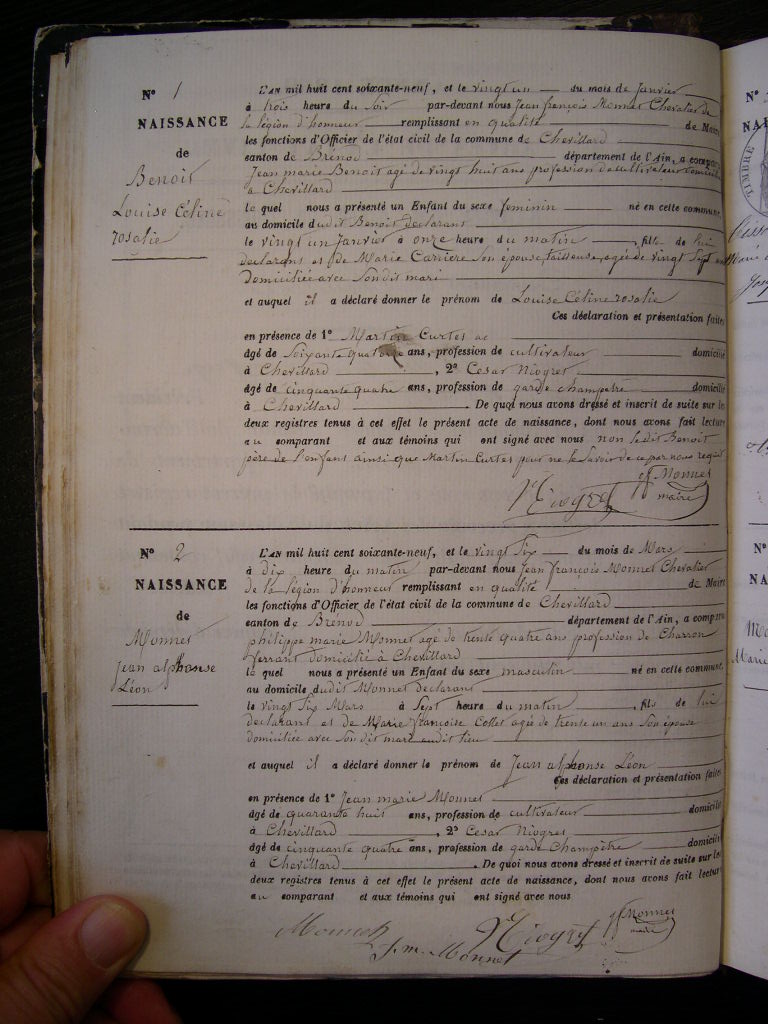 N° 1
NAISSANCE
de
Benoit
Louise Céline
rosalie
L'AN mil huit cent soixante-neuf, et le vingt un du mois de Janvier
à trois heure du soir par-devant nous Jean françois Monnet Chevalier de
la légion d'honneur remplissant en qualité de Maire
les fonctions d'Officier de l'état civil de la commune de Chevillard
canton de Brénod département de l'Ain, a comparu
Jean marie Benoit agé de vingt huit ans profession de cultivateur domicilié
a Chevillard
le quel nous a présenté un Enfant du sexe feminin né en cette commune
au domicile dudit Benoit declarant
le vingt un Janvier à onze heure du matin, fille de lui
declarans et de Marie Carriere son epouse, tailleuse, agée de vingt Sept ans
domiciliée avec Son dit mari
et auquel il a déclaré donner le prénom de Louise Céline rosalie
Ces déclaration et présentation faites
en présence de 1° Martin Curtet
âgé de Soixante quatorze ans, profession de cultivateur domicilié
à Chevillard, 2° Cesar Niogret
âgé de cinquante quatre ans, profession de garde champetre domicilié
à Chevillard. De quoi nous avons dressé et inscrit de suite sur les
deux registres tenus à cet effet le présent acte de naissance, dont nous avons fait lecture
au comparant et aux témoins qui ont signé avec nous non ledit Benoit
père de l'enfant ainsi que Martin Curtet pour ne le Savoir de ce par nous requit
Niogret
jf Monnet
maire
N° 2
NAISSANCE
de
Monnet
Jean alphonse
Léon
L'AN mil huit cent soixante-neuf, et le vingt Six du mois de Mars
à dix heure du matin par-devant nous Jean françois Monnet Chevalier
de la légion d'honneur remplissant en qualité de Maire
les fonctions d'Officier de l'état civil de la commune de Chevillard
canton de Brénod département de l'Ain, a comparu
philippe marie Monnet agé de trente quatre ans profession de Charron
ferrant domicilié à Chevillard
le quel nous a présenté un Enfant du sexe masculin né en cette commune
au domicile dudit Monnet declarant
le vingt Six Mars à Sept heure du matin, fils de lui
declarant et de Marie françoise Collet agée de trente un ans Son épouse
domiciliée avec Son dit mari audit lieu
et auquel il a déclaré donner le prénom de Jean alphonse Léon
Ces déclaration et présentation faites
en présence de 1° Jean marie Monnet
âgé de quarante huit ans, profession de cultivateur domicilié
à Chevillard, 2° Cesar Niogret
âgé de cinquante quatre ans, profession de garde Champêtre domicilié
à Chevillard. De quoi nous avons dressé et inscrit de suite sur les
deux registres tenus à cet effet le présent acte de naissance, dont nous avons fait lecture
au comparant et aux témoins qui ont signé avec nous
Monnet
J. m. Monnet
Niogret
jf Monnet
maire
N°
NA
TIMBRE
N°
NA
Marie